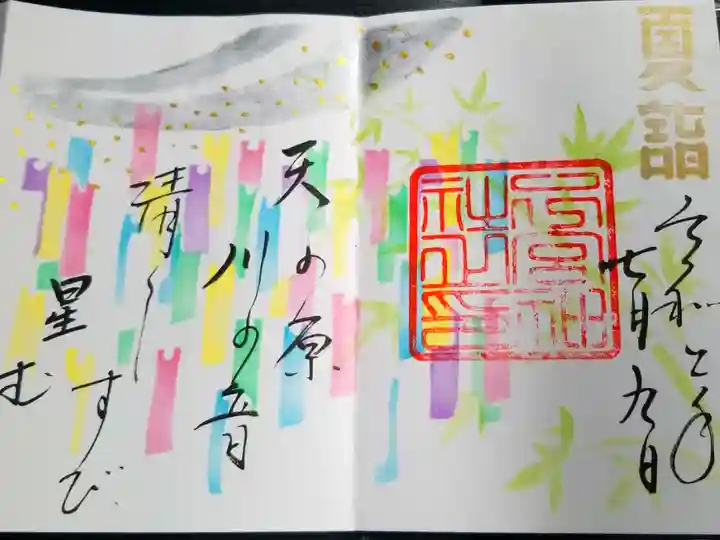 夏詣
令和二年
七月九日
天の原
川の音
清し
星すび
む